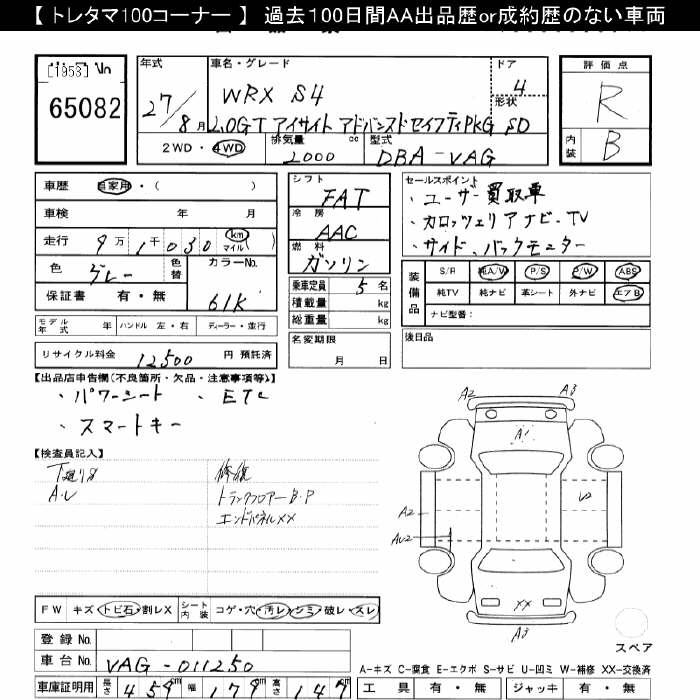 【 トレタマ100コーナー 】 過去100日間AA出品歴or成約歴のない車両
[1953]
65082
年式
27/8月
車名・グレード
WRX S4
2.0GT アイサイト アドバンスドセイフティPKG 5D
ドア 4
形状
評価点
R
内装 B
2WD・4WD
排気量 2000 cc
型式 DBA-VAG
車歴 自家用・( )
車検 年 月
走行 9万1千030 km マイル( )
色 グレー
色替
カラーNo. 61K
保証書 有・無
モデル年式 年 ハンドル 左・右 ディーラー・並行
リサイクル料金 12500 円 預託済
シフト FAT
冷房 AAC
燃料 ガソリン
乗車定員 5 名
積載量 kg
総重量 kg
名変期限
月 日
セールスポイント
・ユーザー買取車
・カロッツェリアナビ・TV
・サイド、バックモニター
装備品
S/R 純A/V P/S P/W ABS
純TV 純ナビ 革シート 外ナビ エアB
ナビ型番:
後日品
【出品店申告欄(不良箇所・欠品・注意事項等)】
・パワーシート ・ETC
・スマートキー
【検査員記入】
下廻りS
A・U
修復
トランクフロアーB・P
エンドパネルXX
A2 A3
A1
A2
AU2
XX
A3
スペア
FW キズ・トビ石・割レX
シート内装 コゲ・穴・汚レ・シミ・破レ・スレ
登録 No.
車台 No. VAG-011250
A-キズ C-腐食 E-エクボ S-サビ U-凹ミ W-補修 XX-交換済
車庫証明用 長さ 459 幅 179 高さ 147
工具 有・無 ジャッキ 有・無